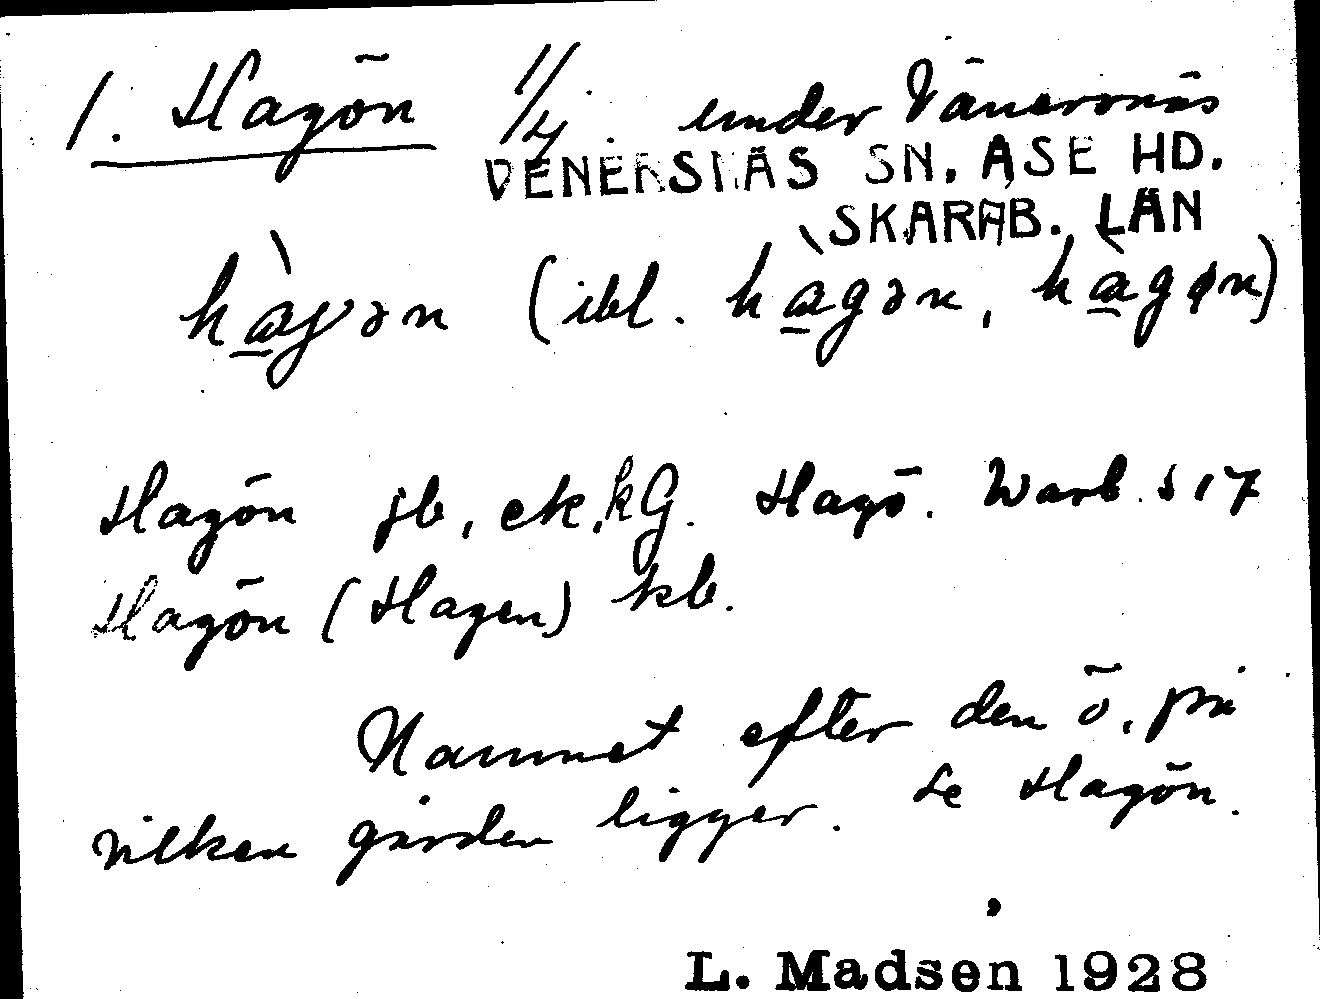 1. Hagön 1/4. under Vänersnäs
VENERSNÄS SN. ÅSE HD.
SKARAB. LÄN
hàgɘn (ibl. hàgɘn, hàgøn)
Hagön jb, ek, kG. Hagö. Warb. s 17
Hagön (Hagen) kb.
Namnet efter den ö, på
vilken gården ligger. Se Hagön.
L. Madsen 1928